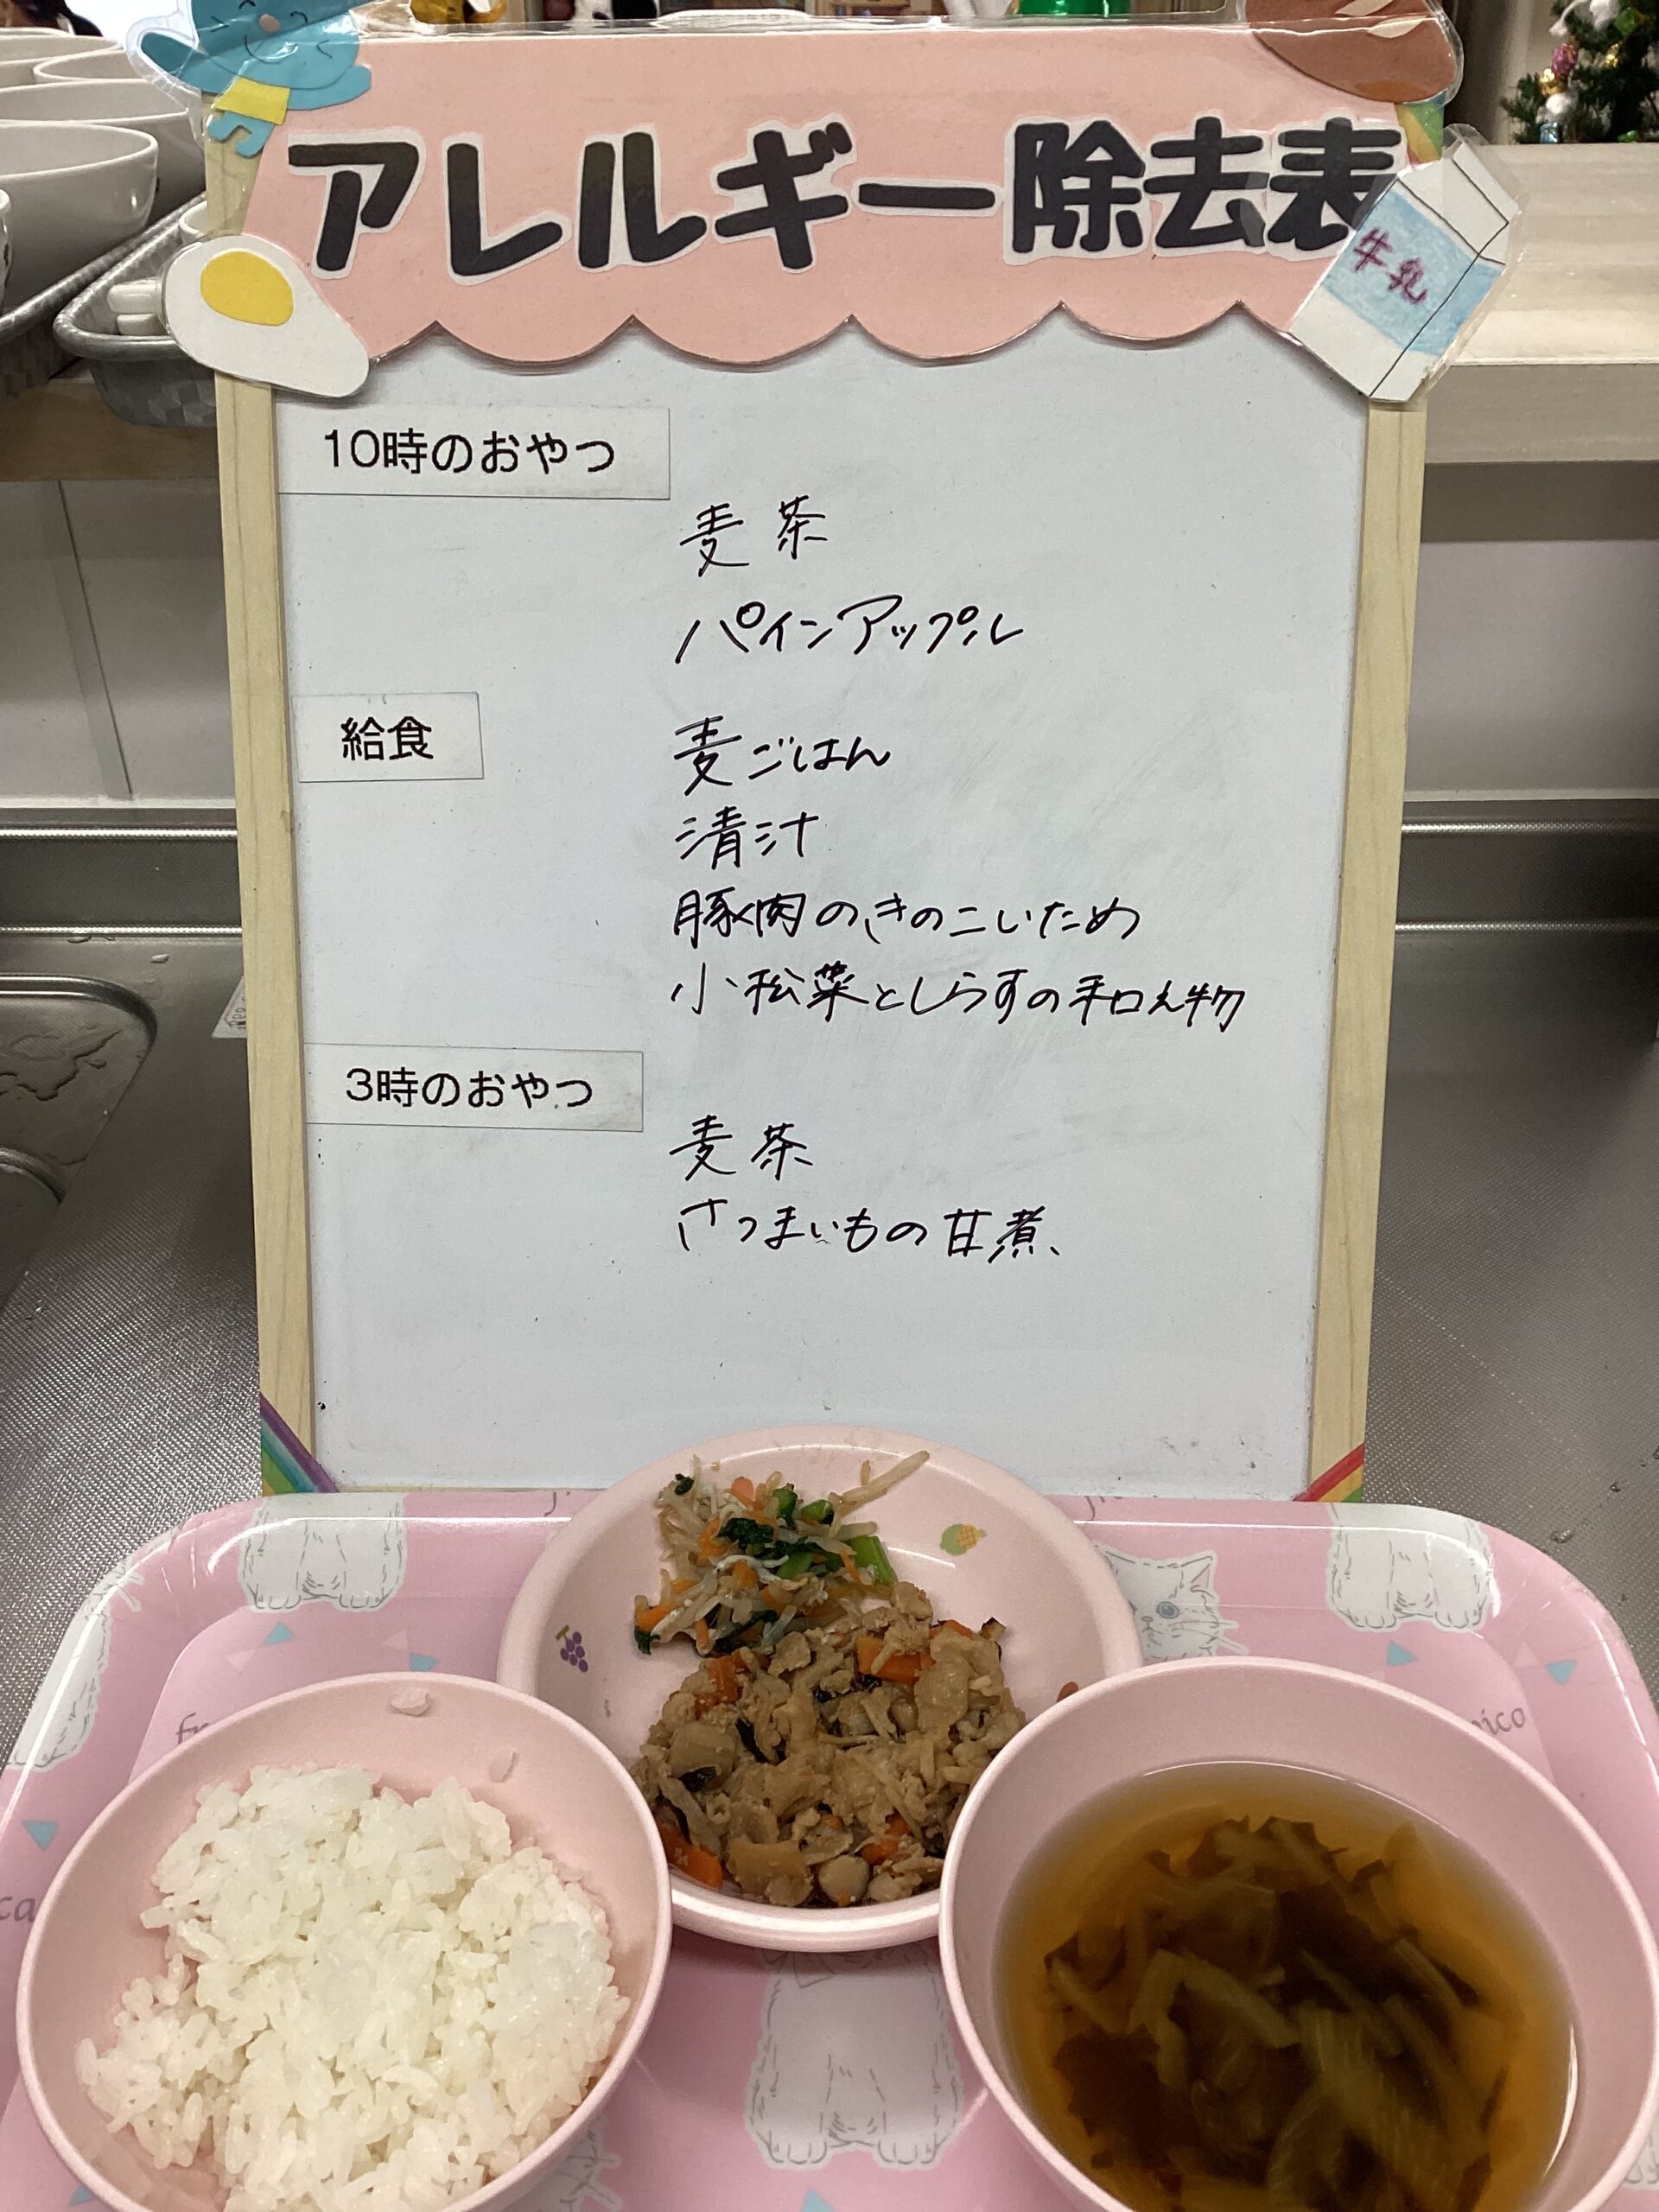 アレルギー除去表
牛乳
10時のおやつ
麦茶
パインアップル
給食
麦ごはん
清汁
豚肉のきのこいため
小松菜としらすの和え物
3時のおやつ
麦茶
さつまいもの甘煮